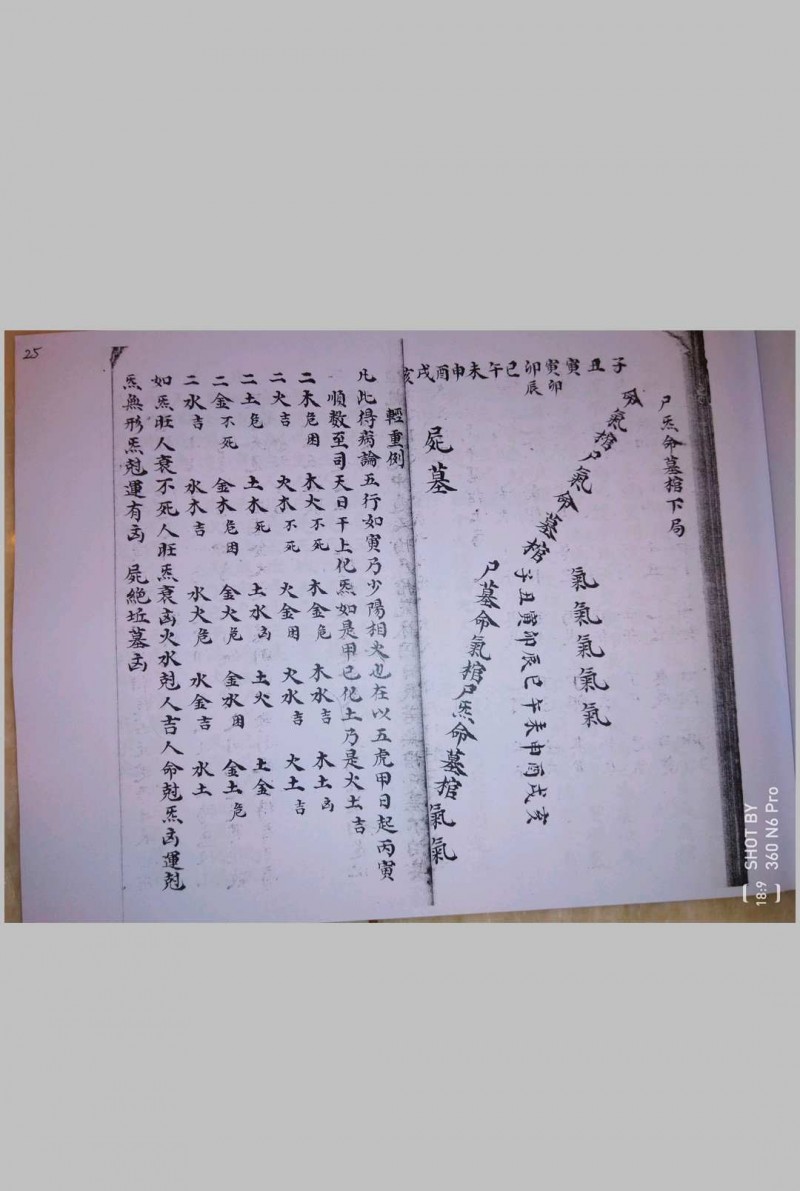 尸炁命墓棺下局
子丑寅寅卯巳午未申酉戌亥
卯辰
氣棺尸氣命墓棺
氣氣氣氣氣
子丑寅卯辰巳午未申酉戌亥
尸墓命氣棺尸炁命墓棺氣氣
屍墓
輕重例
凡此得病論五行如寅乃少陽相火也在以五虎甲日起丙寅
順数至司天日干上化炁如是甲己化土乃是火土吉
二木危困 木火不死 木金危 木水吉 木土凶
二火吉 火木不死 火金困 火水吉 火土吉
二土危 土木死 土水凶 土火 土金
二金不死 金木危困 金火危 金水困 金土危
二水吉 水木吉 水火危 水金吉 水土
如炁旺人衰不死人旺炁衰凶火水尅人吉人命尅炁凶運尅
炁無形炁尅運有凶 屍絶坵墓凶
25
SHOT BY
360 N6 Pro
18:9